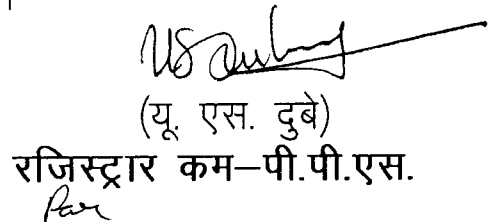 (यू. एस. दुबे)
रजिस्ट्रार कम–पी.पी.एस.